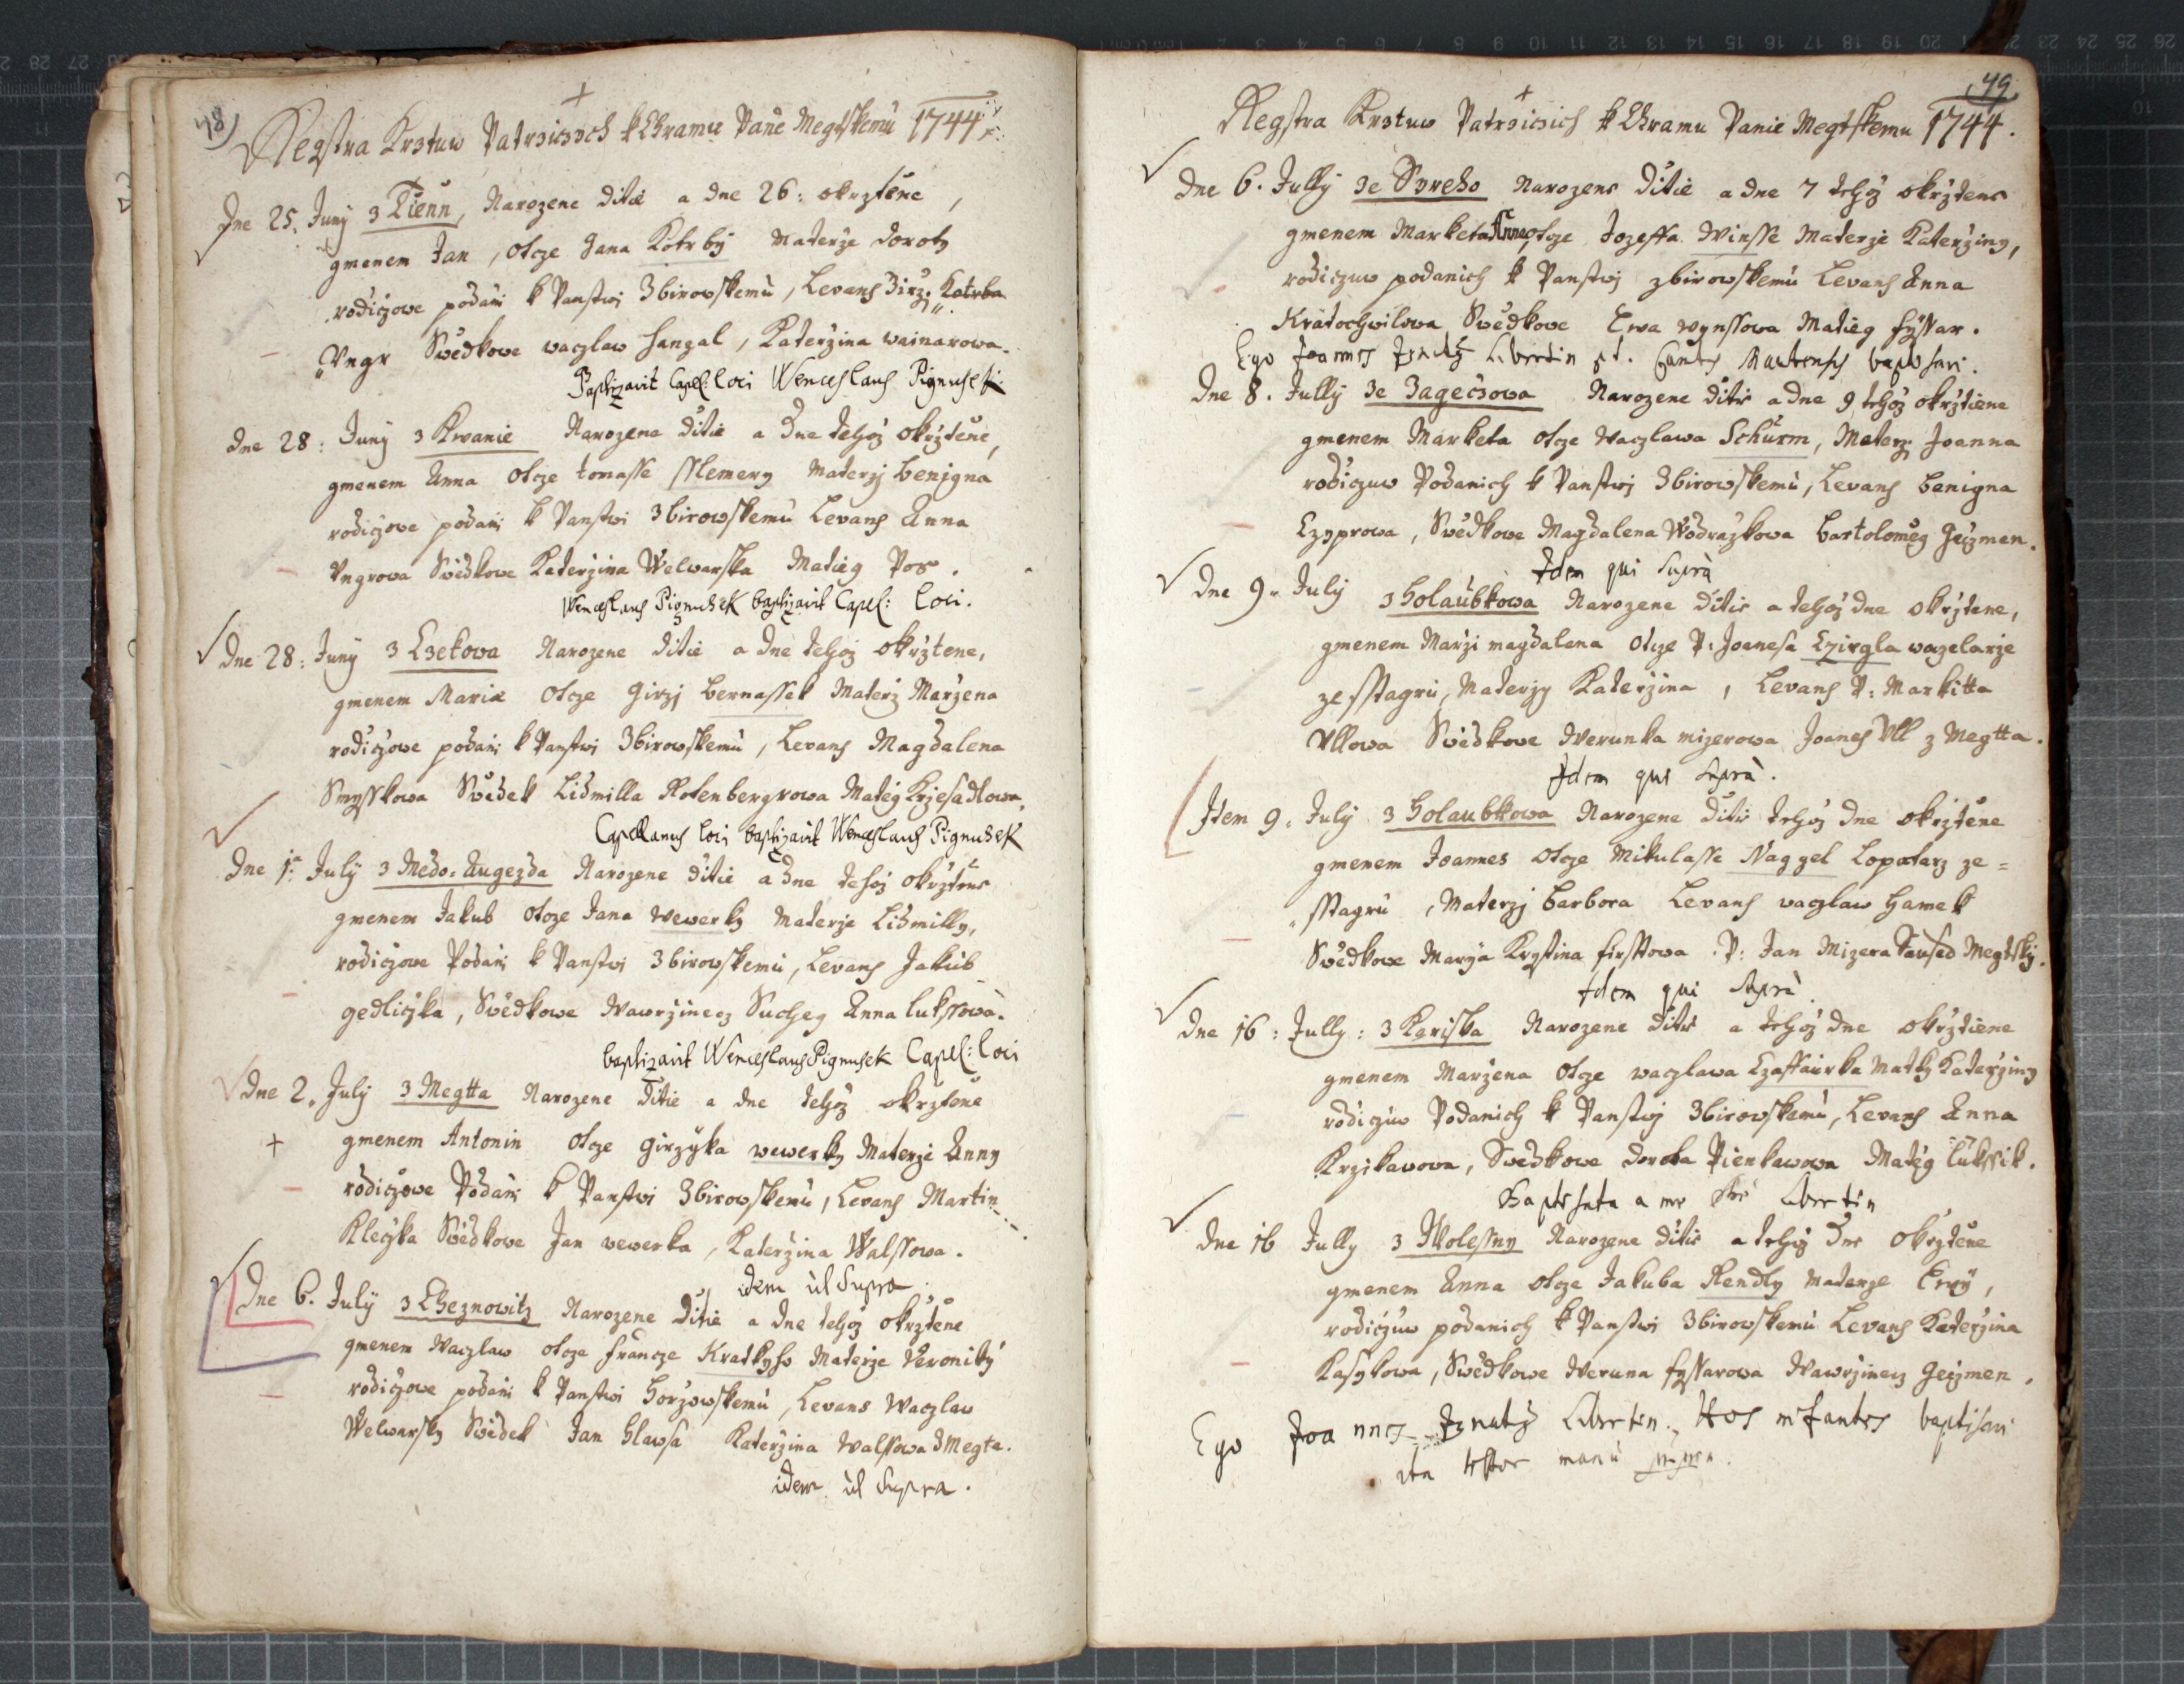 48)
Regstra Krztuw Patrzicych k Chramu Pane Megtskemu 1744
Dne 25. Juny z Tienn, Narozene ditie a dne 26: okrztene,
gmenem Jan, otcze Jana Kotrby Materze Doroty
rodiczowe podani k Panstwi Zbirowskemu, Levans Jirz. Kotrba
Vngr Swedkowe waczlaw hanzal, Katerzina wainarowa.
Baptizavit Capel: loci Wenceslaus Pignusek
dne 28: Juny z Kwanie Narozene ditie a Dne tehoz okrztene,
gmenem Anna otcze tomasse sslemery Materzj benigna
rodiczowe podani k Panstwi Zbirowskemu Levans Anna
Vngrowa Swedkowe Katerzina Welwarska Matieg Pos.
Wenceslaus Pignusek baptizavit Capel: loci.
Dne 28: Juny z Czekowa Narozene ditie a dne tehoz okrztene,
gmenem Maria otcze Girzj bernassek Materz Marzena
rodiczowe podani k Panstwi Zbirowskemu, Levans Magdalena
Smysskowa Swedek Lidmilla Rotenbergrowa Mateg Krzesadlowa,
Capellanus loci baptizavit Wenceslaus Pignusek
Dne 1: July z Medo. Augezda Narozene ditie a Dne tehoz okrztene
gmenem Jakub otcze Jana wewerky Materze Lidmilly,
rodiczowe Podani k Panstwi Zbirowskemu, Levans Jakub
gedliczka, Swedkowe Wawrzinecz Suchey Anna lukssowa.
baptizavit Wenceslaus Pignusek Capel: loci
Dne 2. July z Megtta Narozene ditie a dne tehoz okrztene
gmenem Antonin otcze girzyka wewerky Materze Anny
rodiczowe Podani k Panstwi Zbirowskemu, Levans Martin
Kleczka Swedkowe Jan wewerka, Katerzina Walssowa.
idem ut Supra.
Dne 6. July z Cheznowitz Narozene ditie a dne tehoz okrztene
gmenem Waczlaw otcze francze Kratkyho Materze Veroniky
rodiczowe podani k Panstwi horzowskemu, Levans Waczlaw
Welwarsky Swedek Jan hlawsa Katerzina Walssowa z Megta.
idem ut Supra.
49
Regstra Krztuw Patrzicich k Chramu Panie Megtskemu 1744.
Dne 6. Jully ze Narozene ditie a dne 7 tehoz okrztene
gmenem Marketa Anna otcze Jozeffa Winsse Materze Katerziny,
rodiczuw podanich k Panstwj zbirowskemu Levans Anna
Kratochwilowa Swedkowe Ewa wynssowa Matieg fyssar.
Ego Joannes Ignatz Libertin baptisavi.
Dne 8. Jully ze Zageczowa Narozene ditie a dne 9 tehoz okrztiene
gmenem Marketa otcze Waczlawa Schurm, Materz Joanna
rodiczuw Podanich k Panstwj Zbirowskemu, Levans benigna
Czyprowa, Swedkowe Magdalena Wodrazkowa bartolomeg Geyzmen.
Idem qui Supra
Dne 9. July z holaubkowa Narozene ditie a tehoz dne okrztene,
gmenem Marzi magdalena otcze P: Joanesa Czirgla wagelarze
ze sstagru, Materzy Katerzina, Levans P: Markitta
Ullowa Swedkowe Werunka mizerowa Joanes Ull z Megtta.
Idem qui Supra.
Item 9. July z holaubkowa Narozene ditie tehoz dne okrztene
gmenem Joannes otcze Mikulasse Naggel Lopatarz ze=
sstagru, Materzj barbora Levans waczlaw hamek
Swedkowe Marya Krystina firsstowa P: Jan Mizera Saused Megtsky.
Idem qui Supra.
Dne 16: Jully: z Kariska Narozene ditie a tehoz dne okrztiene
gmenem Marzena otcze waczlawa Czaffaurka Matky Katerziny
rodiczuw Podanich k Panstwj Zbirowskemu, Levans Anna
Krzikawowa, Swedkowe dorota Pienkawowa Mateg lukssik.
Baptisata a me Libertin
Dne 16 Jully z Wolessny Narozene ditie a tehoz dne okrztene
gmenem Anna otcze Jakuba Rendly Materze Ewy,
rodiczuw podanich k Panstwi Zbirowskemu Levans Katerzina
Kasykowa, Swedkowe Weruna fyssarowa Wawrzinecz Geyzmen.
Ego Joannes Ignatz Libertin. Hos infantes baptisavi
ita testor manu propria.